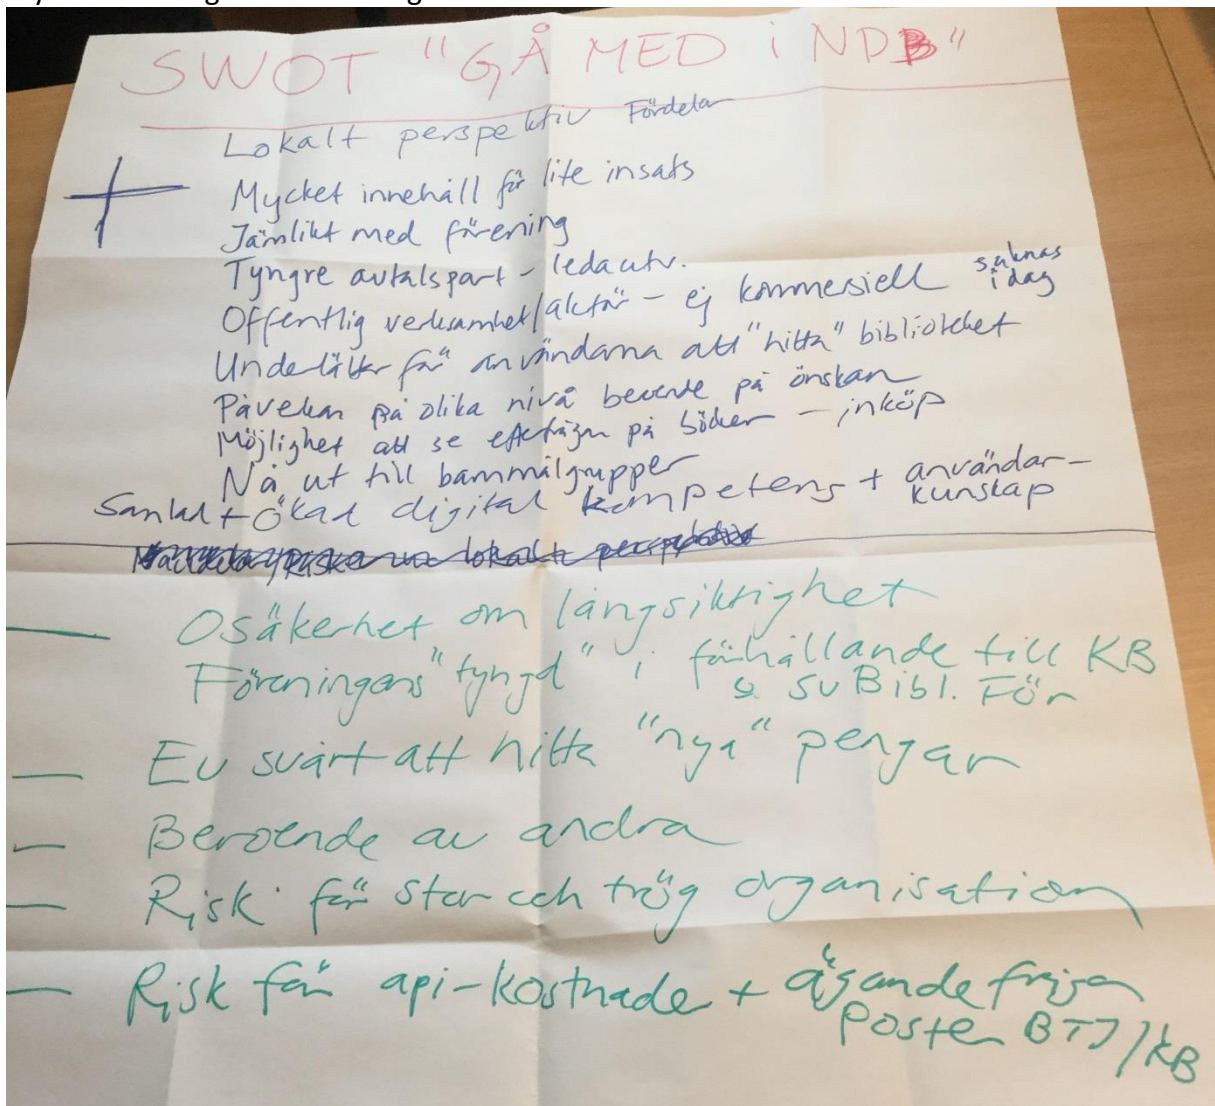 SWOT "GÅ MED i NDB"
Lokalt perspektiv Fördelar
Mycket innehåll för lite insats
Jämlikt med förening
Tyngre avtalspart - leda utv.
Offentlig verksamhet/aktör - ej kommersiell saknas idag
Underlättar för användarna att "hitta" biblioteket
Påverkan på olika nivå beroende på önskan
Möjlighet att se efterfrågan på böcker - inköp
Nå ut till barnmålgrupper
Samlad + Ökad digital kompetens + användar-
kunskap
lokalt perspektiv
Osäkerhet om långsiktighet
Föreningens "tyngd" i förhållande till KB
& Sv Bibl. För
Ev svårt att hitta "nya" pengar
Beroende av andra
Risk för stor och trög organisation
Risk för api-kostnader + ägandefrågan
poster BTJ/KB